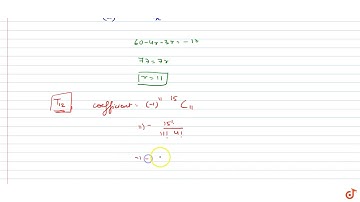 60-4r-3r = -17
77 = 7r
r = 11
T12 coefficient = (-1)^11 15C11
=) - 15! / 11! 4!
=) -